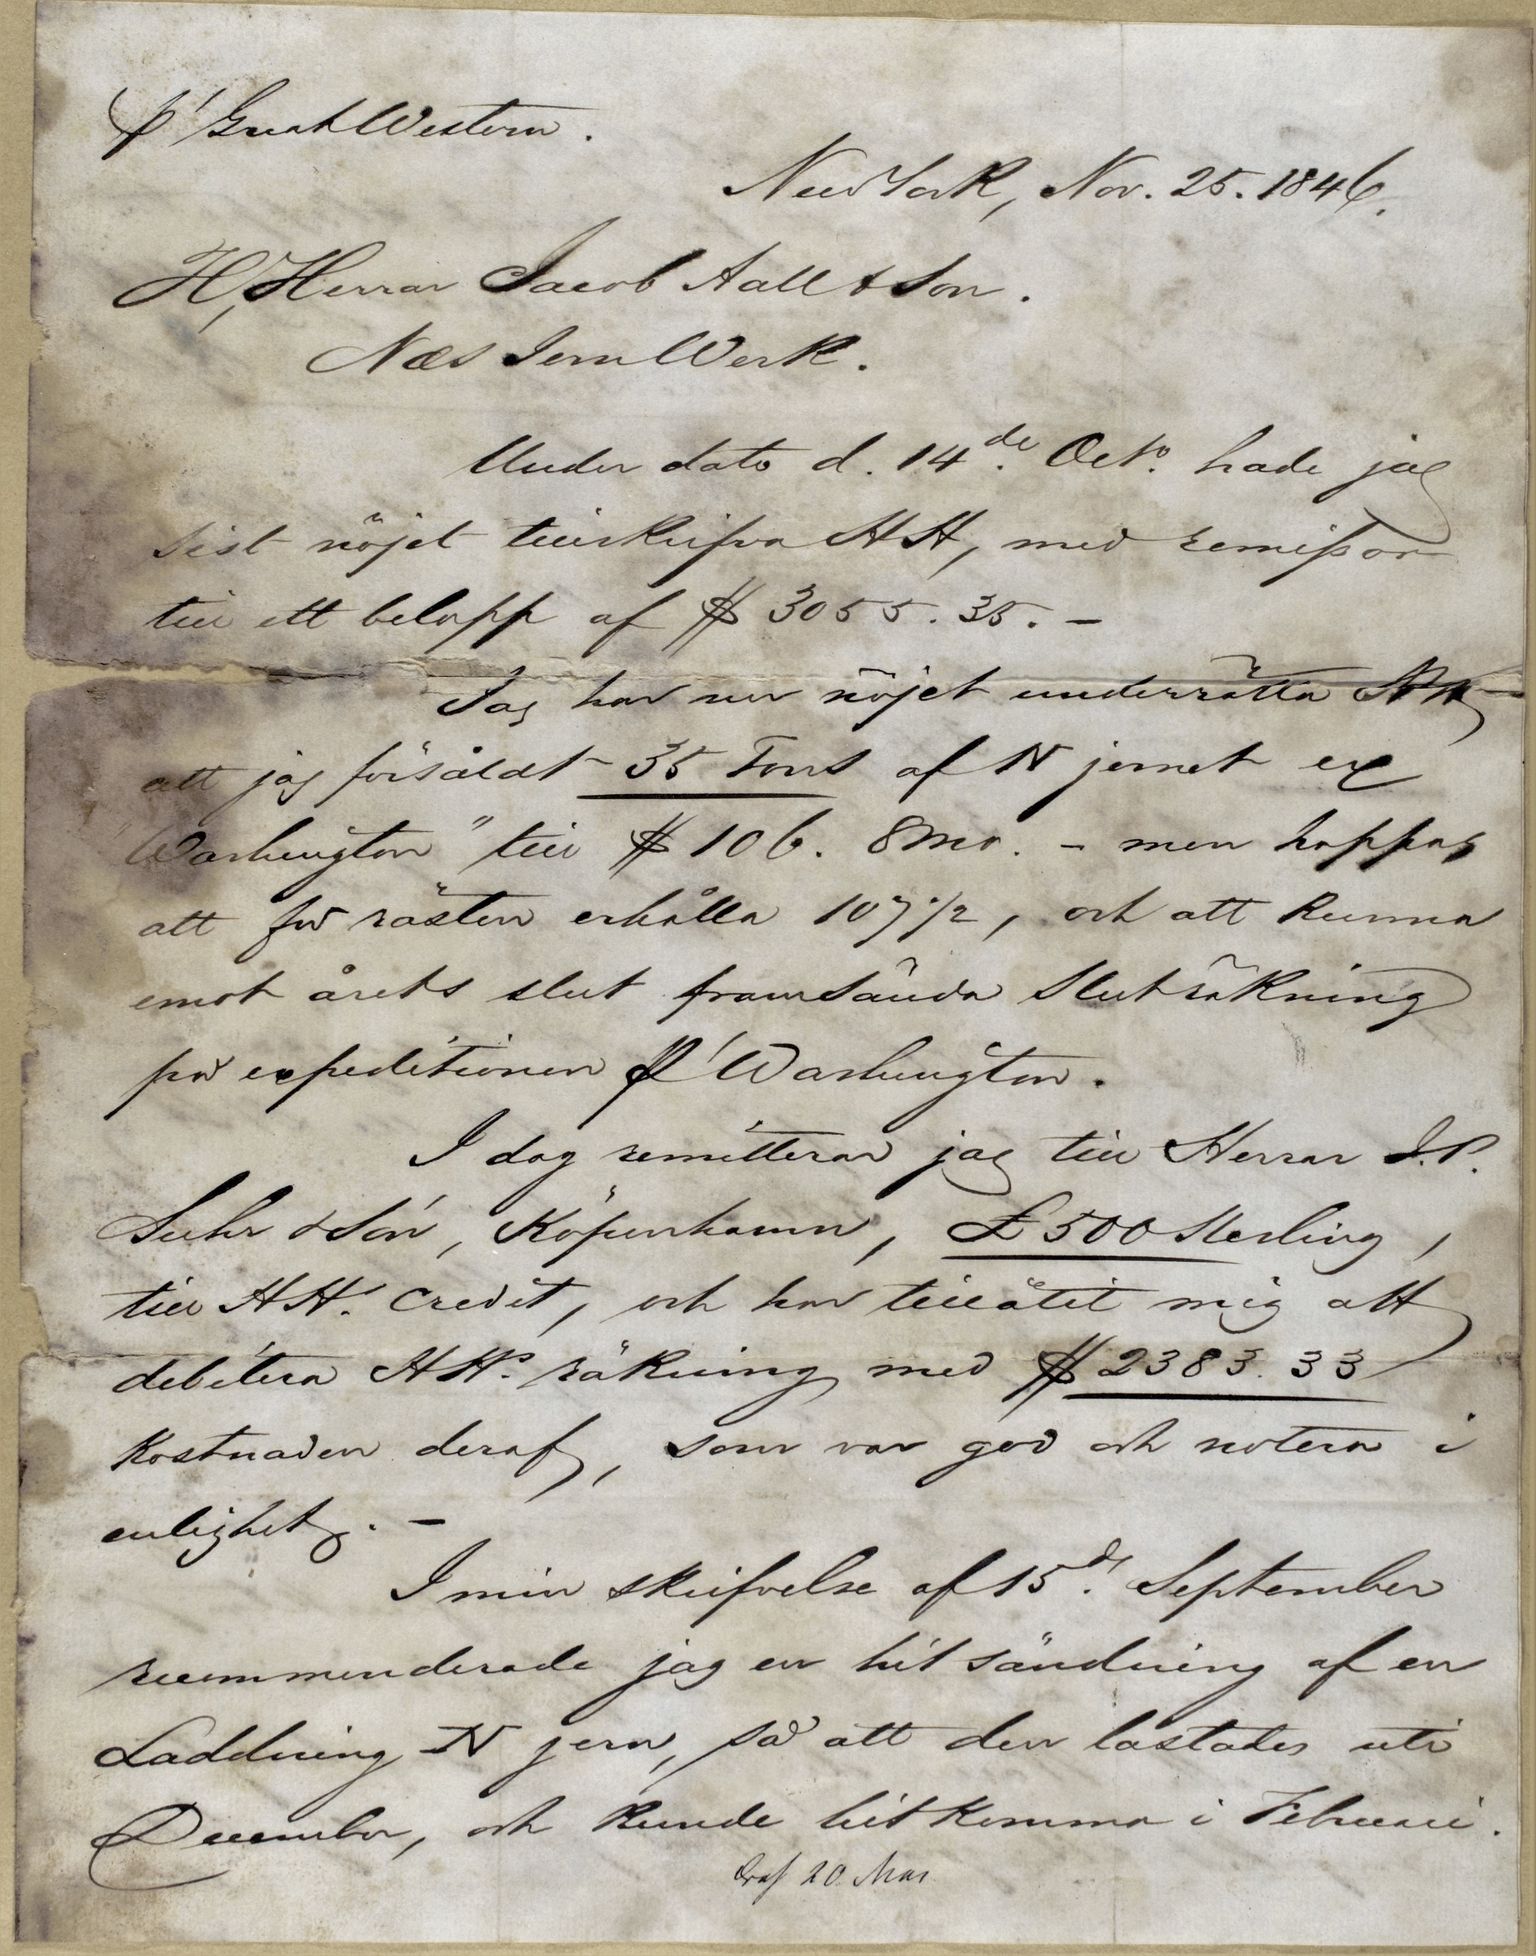 p' Great Western.
New York, Nov. 25. 1846.
H, Herrar Jacob Aall & Son.
Næs Jern Werk.
Under dato d. 14de. Octo. hade jag
sist nöjet tillskrifva HH, med remissor
till ett belopp af $ 3055.35. –
Jag har nu nöjet underrätta HH
att jag försåldt 35 Tons af N jernet ex
"Washington" till $ 106. 8 mo. – men hoppas
att för rästen erhålla 107 1/2, och att kunna
emot årets slut framsända Sluträkning
på expeditionen p' Washington.
I dag remitterar jag till Herrar J.P.
Suhr & Són, Köpenhamn, £ 500 Sterling,
till HH. Credit, och har tillåtit mig att
debitera HHs. räkning med $ 2383.33
Kostnaden deraf, som var god och notera i
enlighet. –
I min skrifvelse af 15d. September
recommenderade jag en hitsändning af en
Laddning N jern, så att den lastades uti
December, och kunde hitkomma i Februari.
20 Mar